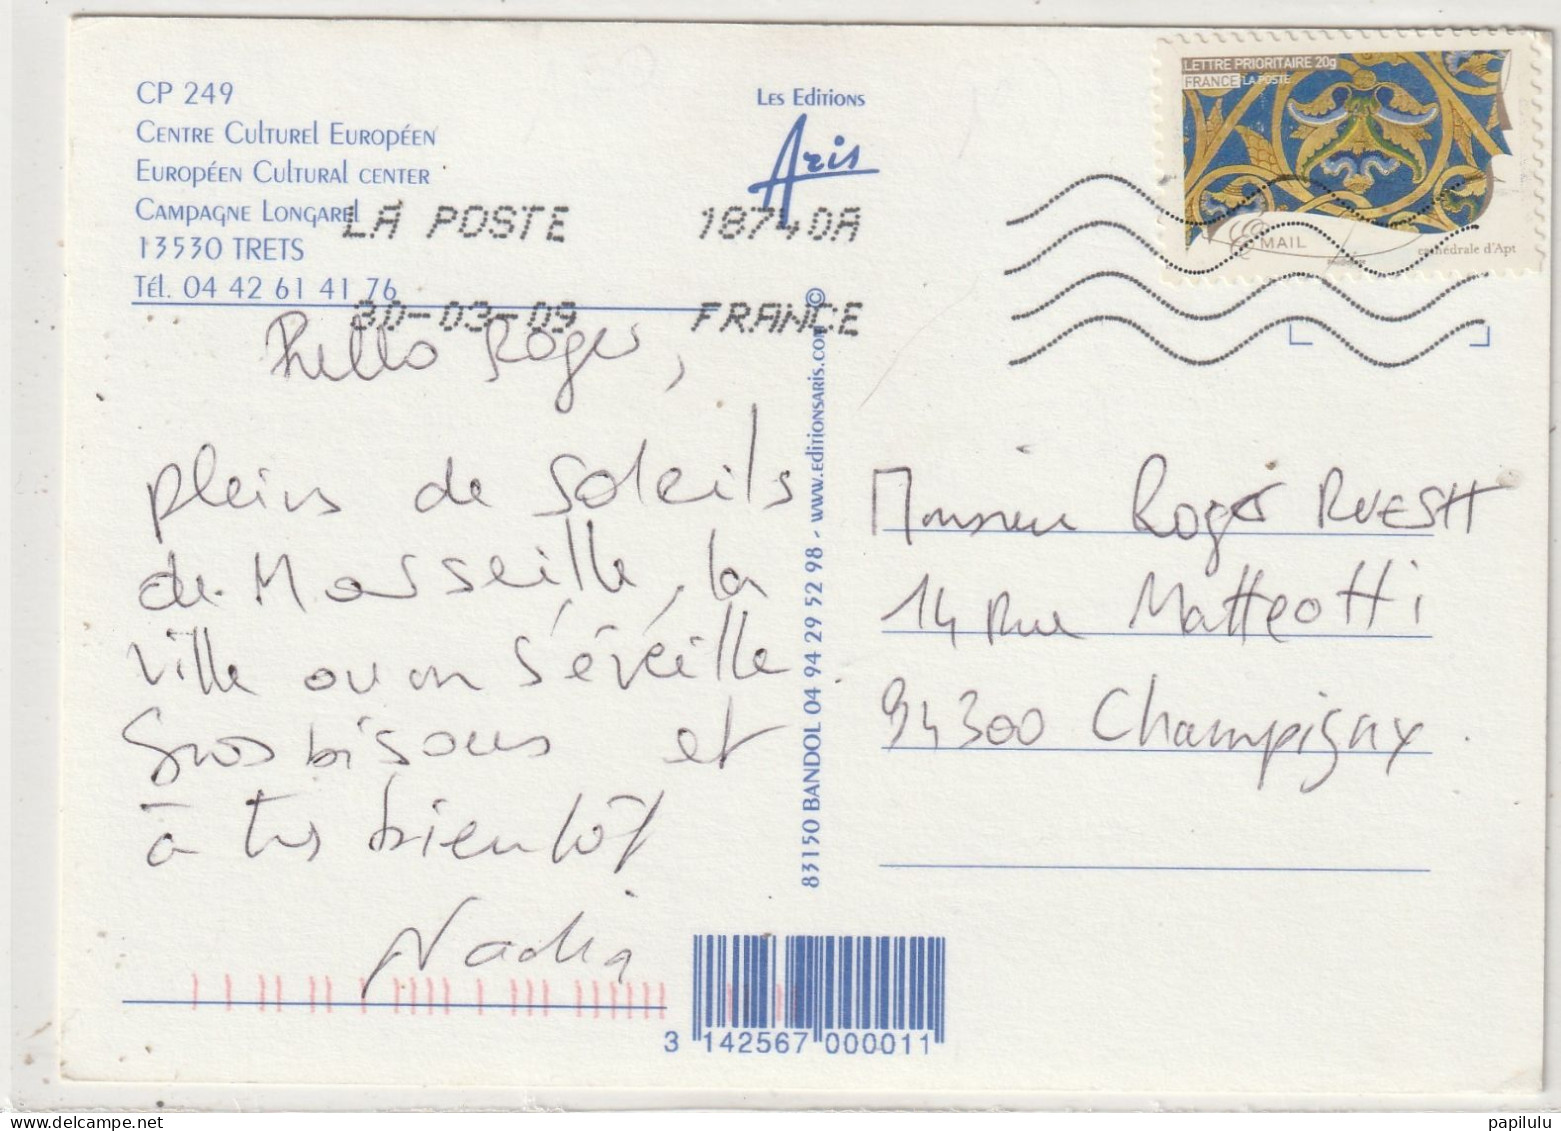 CP 249
Centre Culturel Européen
Européen Cultural center
Campagne Longarel
13530 TRETS
Tél. 04 42 61 41 76
Les Editions
Aris
LETTRE PRIORITAIRE 20g
FRANCE LA POSTE
MAIL
cathédrale d'Apt
LA POSTE 18740A
30-03-09 FRANCE
Hello Roger,
pleins de soleils
de Marseille, la
ville ou on s'éveille
Gros bisous et
à très bientôt
Nadia
83150 BANDOL 04 94 29 52 98 - www.editionsaris.com ©
Monsieur Roger RUESH
14 Rue Matteotti
94300 Champigny
3 142567 000011
papilulu